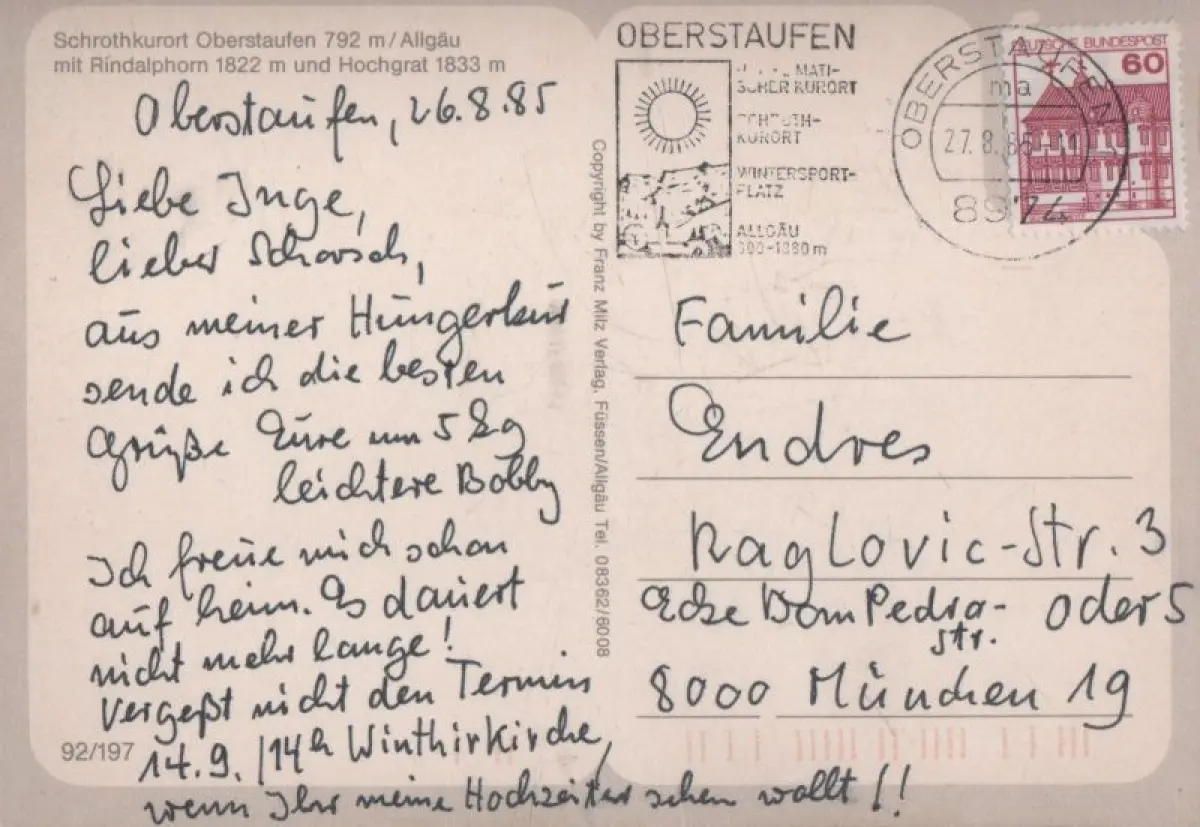 Schrothkurort Oberstaufen 792 m/Allgäu
mit Rindalphorn 1822 m und Hochgrat 1833 m
Oberstaufen, 26.8.85
Liebe Inge,
lieber Schorsch,
aus meiner Hungerkur
sende ich die besten
Grüße Eure um 5 kg
leichtere Bobby
Ich freue mich schon
auf heim. Es dauert
nicht mehr lange!
Vergeßt nicht den Termin
14.9./14h Winthirkirche,
wenn Ihr meine Hochzeiter sehen wollt!!
92/197
Copyright by Franz Milz Verlag, Füssen/Allgäu Tel. 08362/6008
OBERSTAUFEN
SCHER KURORT
KURORT
WINTERSPORT-
PLATZ
ALLGÄU
m
OBERSTAUFEN
ma
27.8.85
8974
DEUTSCHE BUNDESPOST
60
Familie
Endres
Raglovic-Str. 3
Ecke Dom Pedro- oder 5
Str.
8000 München 19